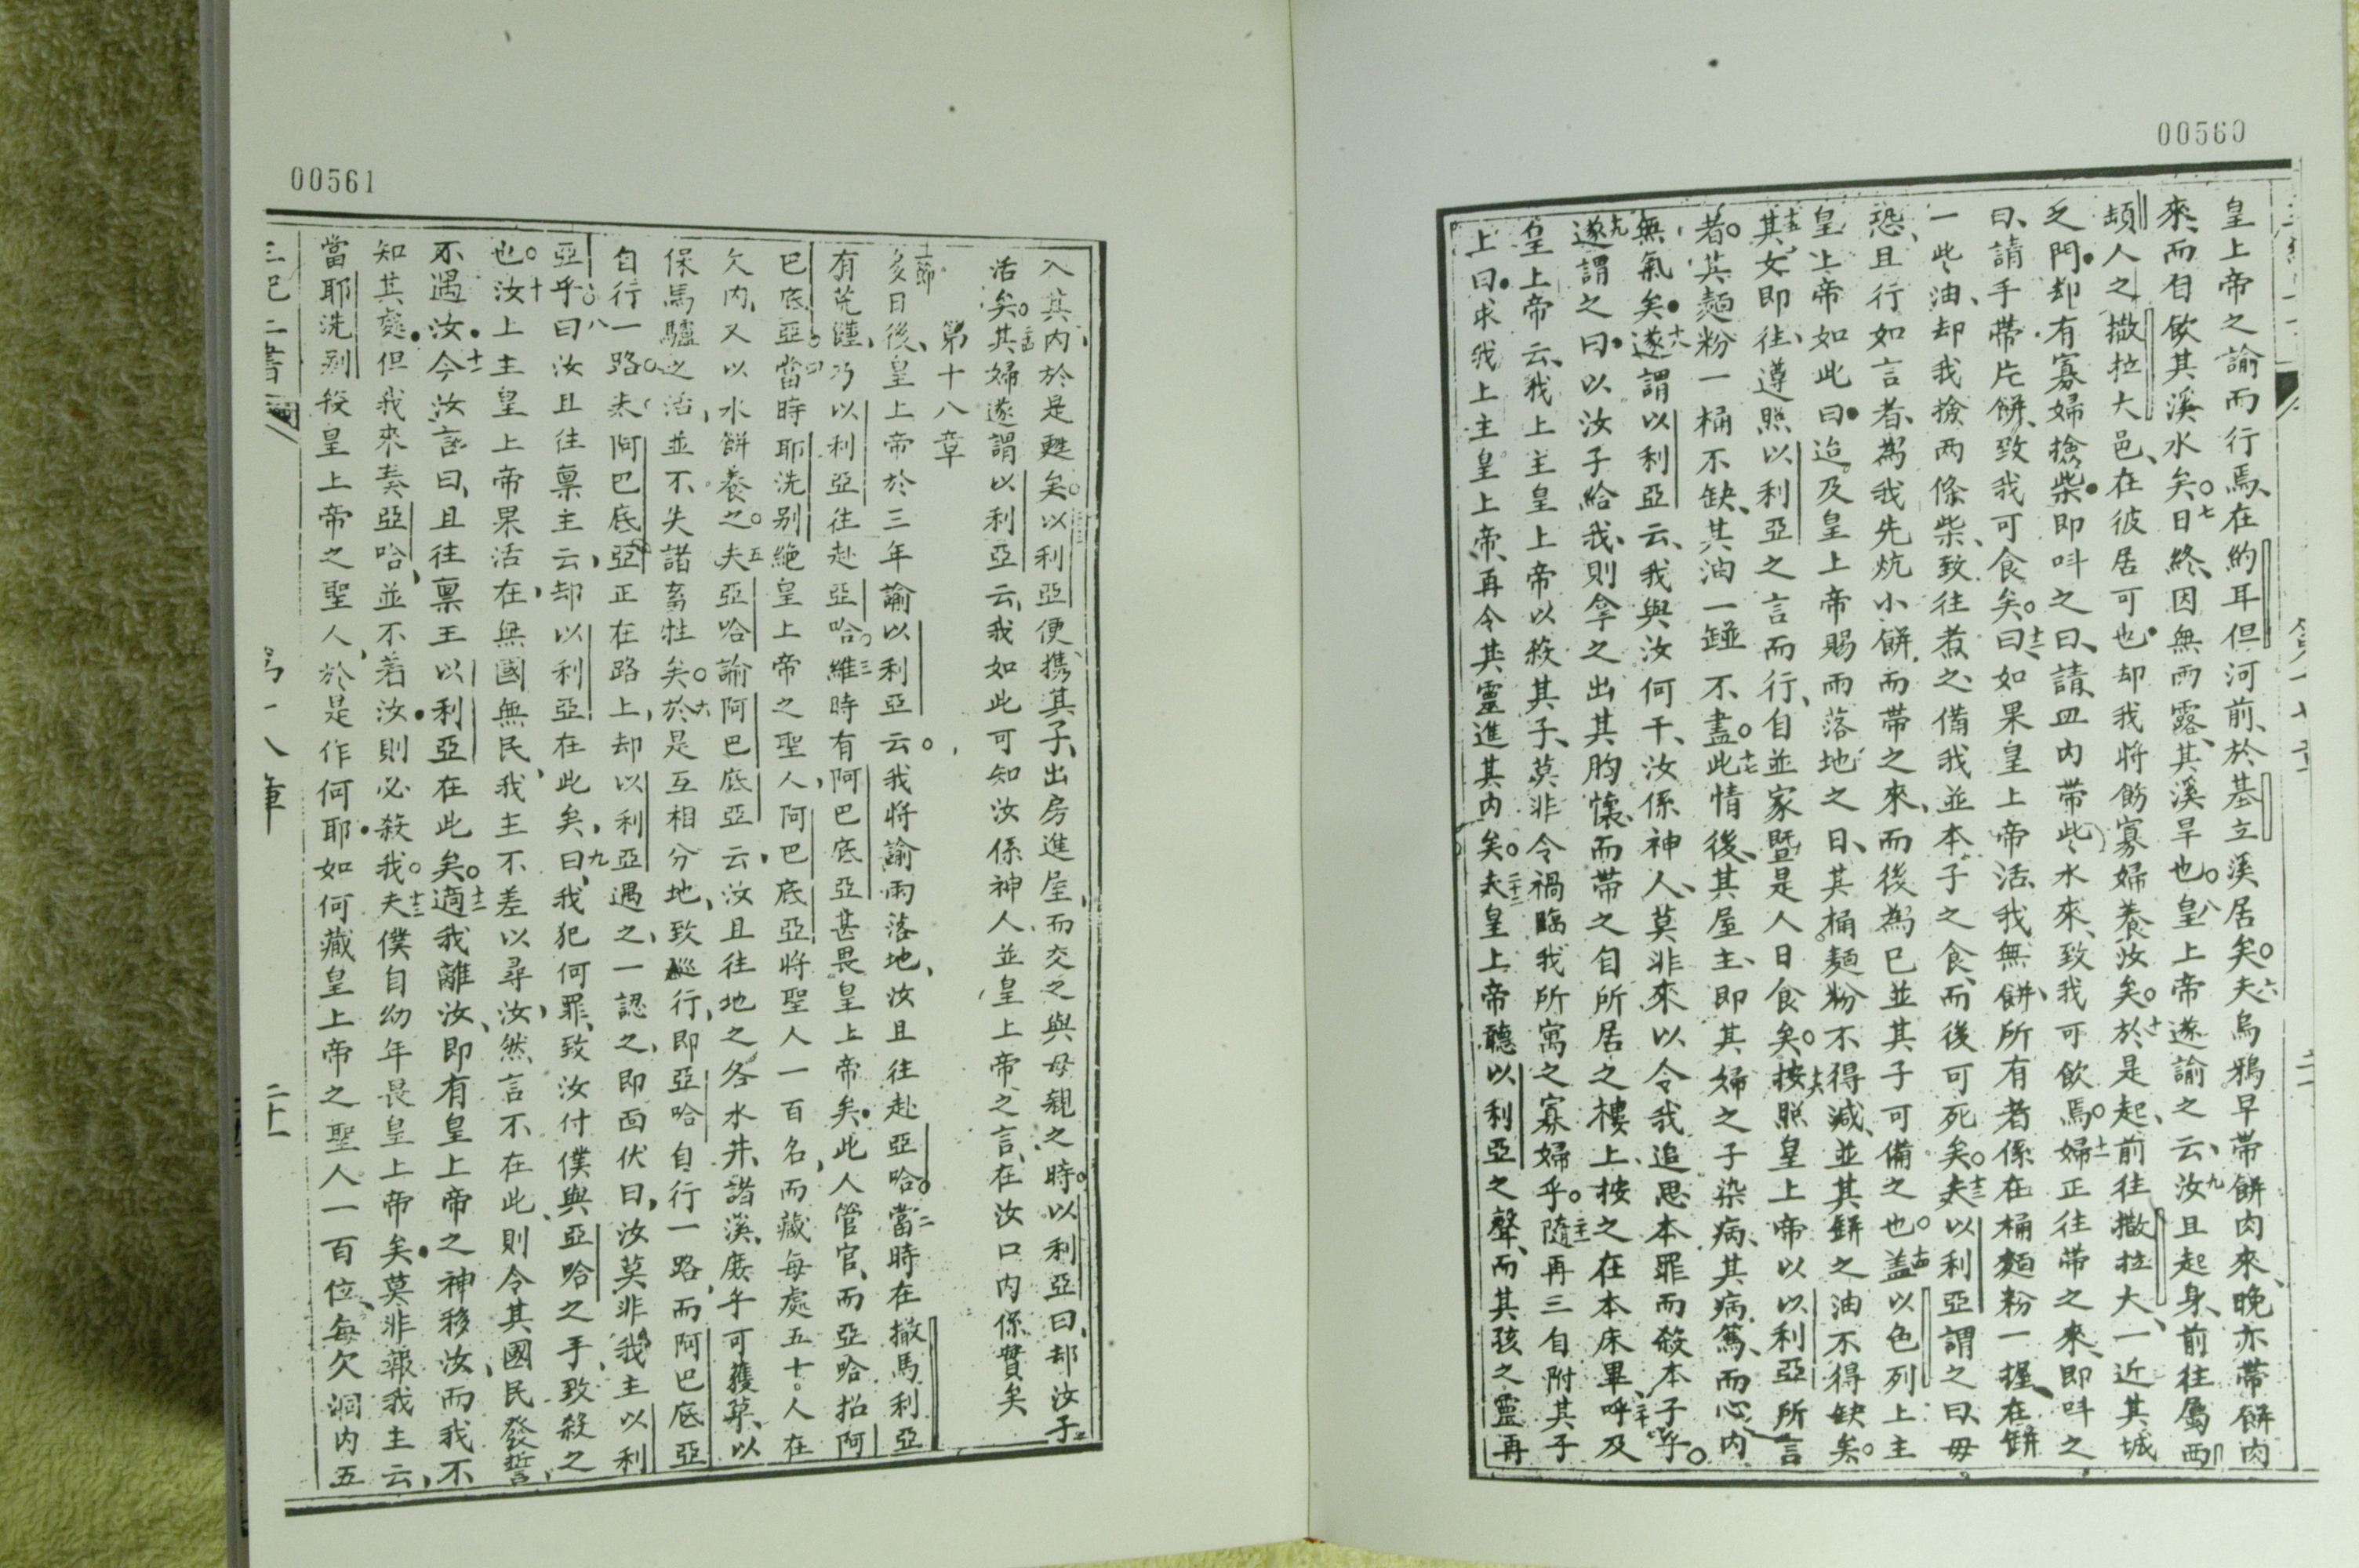 00560
皇上帝之諭而行焉、在約耳但河前、於基立溪居矣。六夫烏鴉早帶餅肉來、晚亦帶餅肉
來、而自飲其溪水矣。七日終、因無雨露、其溪旱也。八皇上帝遂諭之云、九汝且起身、前往屬西
頓人之撒拉大邑、在彼居可也、却我將飭寡婦養汝矣。十於是起、前往撒拉大、一近其城
之門、却有寡婦撿柴、即呌之曰、請、皿內帶些水來、致我可飲焉。十一婦正往帶之來、即呌之
曰、請手帶片餅、致我可食矣。十二曰、如果皇上帝活、我無餅、所有者係在桶麵粉一握、在缾
一些油、却我撿兩條柴、致往煮之、備我並本子之食、而後可死矣。十三夫以利亞謂之曰、毋
恐、且行如言者、為我先炕小餅、而帶之來、而後為己並其子可備之也。十四盖以色列上主
皇上帝如此曰、迨及皇上帝賜雨落地之日、其桶麵粉不得減、並其缾之油不得缺矣。
十五其女即往、遵照以利亞之言而行、自並家暨是人日食矣。十六按照皇上帝以以利亞所言
者。其麵粉一桶不缺、其油一碰不盡。十七此情後、其屋主、即其婦之子染病、其病篤、而心內
無氣矣。十八遂謂以利亞云、我與汝何干、汝係神人、莫非來以令我追思本罪而殺本子乎。
十九遂謂之曰、以汝子給我、則拿之出其胸懷、而帶之自所居之樓上、按之在本床畢、二十呼及
皇上帝云、我上主皇上帝以殺其子、莫非令禍臨我所寓之寡婦乎。二十一隨再三自附其子
上曰、求我上主皇上帝、再令其靈進其內矣。二十二夫皇上帝聽以利亞之聲、而其孩之靈再
00561
入其內、於是甦矣。二十三以利亞便携其子、出房進屋、而交之與母親之時。以利亞曰、却汝子
活矣。二十四其婦遂謂以利亞云、我如此可知汝係神人、並皇上帝之言、在汝口內係實矣
第十八章
一節多日後、皇上帝於三年諭以利亞云。我將諭雨落地、汝且往赴亞哈。二當時在撒馬利亞
有荒饉、乃以利亞往赴亞哈。三維時有阿巴底亞甚畏皇上帝矣。此人管官、而亞哈招阿
巴底亞。四當時耶洗別絕皇上帝之聖人、阿巴底亞將聖人一百名、而藏每處五十人在
欠內、又以水餅養之。五夫亞哈諭阿巴底亞云、汝且往地之各水井、諸溪、庶乎可獲草、以
保馬驢之活、並不失諸畜牲矣。六於是互相分地、致巡行、即亞哈自行一路、而阿巴底亞
自行一路。七夫阿巴底亞正在路上、却以利亞遇之、一認之、即面伏曰、汝莫非我主以利
亞乎。八曰汝且往禀主云、却以利亞在此矣、九曰、我犯何罪、致汝付僕與亞哈之手、致殺之
也。十汝上主皇上帝果活在、無國無民、我主不差以尋汝、然言不在此、則令其國民發誓、
不遇汝。十一今汝言曰、且往禀王以利亞在此矣。十二適我離汝、即有皇上帝之神移汝、而我不
知其處、但我來奏亞哈、並不若汝、則必殺我。十三夫僕自幼年畏皇上帝矣。莫非報我主云、
當耶洗別殺皇上帝之聖人、於是作何耶、如何藏皇上帝之聖人一百位、每欠洞內五